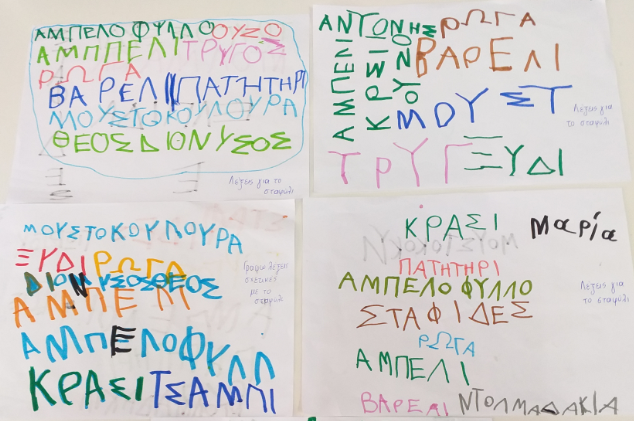 ΑΜΠΕΛΟΦΥΛΛΟ ΟΥΖΟ
ΑΜΠΠΕΛΙ ΤΡΥΓΟΣ
ΡΩΓΑ
ΒΑΡΕΛΙ ΠΑΤΗΤΗΡΙ
ΜΟΥΣΤΟΚΟΥΛΟΥΡΑ
ΘΕΟΣ ΔΙΟΝΥΣΟΣ
Λέξεις για το
σταφύλι
ΑΝΤΩΝΗΣ ΡΩΓΑ
ΑΜΠΕΛΙ
ΚΡΑΣΙ
ΟΥΖΟ
ΒΑΡΕΛΙ
ΜΟΥΣΤ
Λέξεις για
το σταφύλι
ΤΡΥΓ ΞΥΔΙ
ΜΟΥΣΤΟΚΟΥΛΟΥΡΑ
ΞΥΔΙ ΡΩΓΑ
ΔΙΟΝΥΣΟΣ ΘΕΟΣ
ΑΜΠΕΛΙ
ΑΜΠΕΛΟΦΥΛΛ
ΚΡΑΣΙ ΤΣΑΜΠΙ
με το
ΚΡΑΣΙ Μαρία
ΠΑΤΗΤΗΡΙ
ΑΜΠΕΛΟΦΥΛΛΟ
ΣΤΑΦΙΔΕΣ
ΡΩΓΑ
ΑΜΠΕΛΙ
ΒΑΡΕΛΙ ΝΤΟΛΜΑΔΑΚΙΑ
Λέξεις για
το σταφύλι